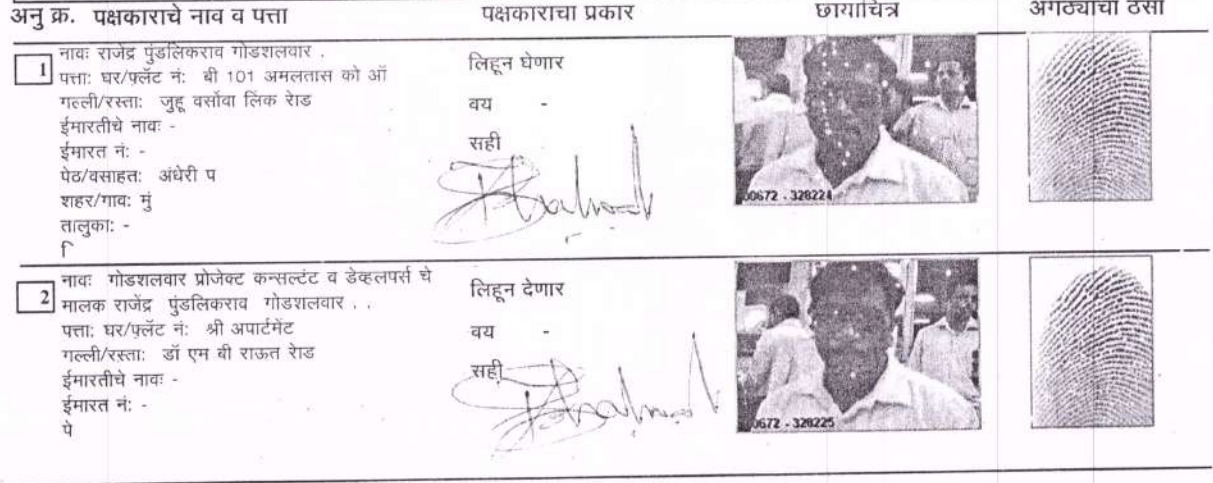 अनु क्र. पक्षकाराचे नाव व पत्ता पक्षकाराचा प्रकार छायाचित्र अंगठ्याचा ठसा
1
नावः राजेंद्र पुंडलिकराव गोडशलवार .
पत्ता: घर/फ्लॅट नं: बी 101 अमलतास को ऑ
गल्ली/रस्ता: जुहू वर्सोवा लिंक रोड
ईमारतीचे नावः -
ईमारत नं: -
पेठ/वसाहत: अंधेरी प
शहर/गाव: मुं
तालुका: -
ि
लिहून घेणार
वय -
सही
00672 - 328224
2
नावः गोडशलवार प्रोजेक्ट कन्सल्टंट व डेव्हलपर्स चे
मालक राजेंद्र पुंडलिकराव गोडशलवार . .
पत्ता: घर/फ्लॅट नं: श्री अपार्टमेंट
गल्ली/रस्ता: डॉ एम बी राऊत रोड
ईमारतीचे नावः -
ईमारत नं: -
पे
लिहून देणार
वय -
सही
00672 - 328225